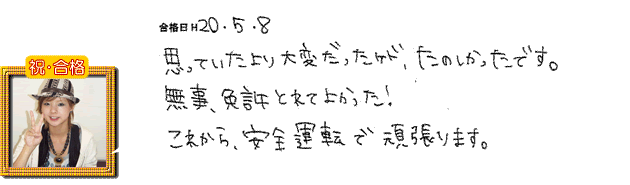 合格日 H20.5.8
祝・合格
思っていたより大変だったけど、たのしかったです。
無事、免許とれてよかった!
これから、安全運転で頑張ります。